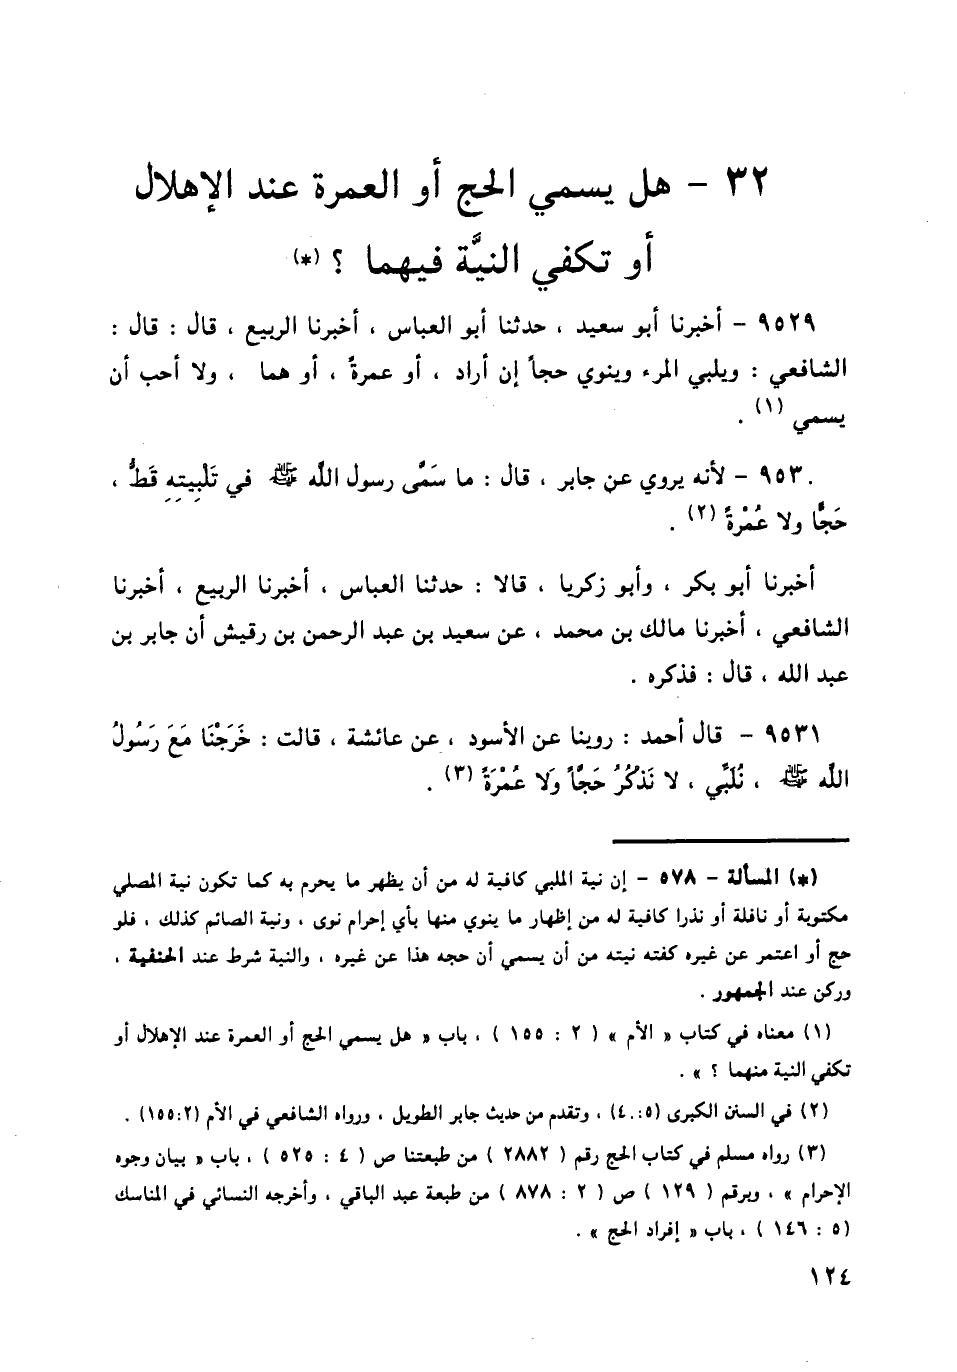 ٣٢ - هل يسمي الحج أو العمرة عند الإهلال
أو تكفي النيَّة فيهما ؟ (*)
٩٥٢٩ - أخبرنا أبو سعيد ، حدثنا أبو العباس ، أخبرنا الربيع ، قال : قال :
الشافعي : ويلبي المرء وينوي حجاً إن أراد ، أو عمرةً ، أو هما ، ولا أحب أن
يسمي (١) .
٩٥٣٠ - لأنه يروي عن جابر ، قال : ما سَمَّى رسول اللَّه ﷺ في تَلْبِيتِهِ قَطُّ ،
حَجًّا ولا عُمْرةً (٢) .
أخبرنا أبو بكر ، وأبو زكريا ، قالا : حدثنا العباس ، أخبرنا الربيع ، أخبرنا
الشافعي ، أخبرنا مالك بن محمد ، عن سعيد بن عبد الرحمن بن رقيش أن جابر بن
عبد الله ، قال : فذكره .
٩٥٣١ - قال أحمد : روينا عن الأسود ، عن عائشة ، قالت : خَرَجْنَا مَعَ رَسُولُ
اللَّه ﷺ ، نُلَبِّي ، لا نَذْكُرُ حَجًّاً وَلا عُمْرَةً (٣) .
(*) المسألة - ٥٧٨ - إن نية الملبي كافية له من أن يظهر ما يحرم به كما تكون نية المصلي
مكتوبة أو نافلة أو نذرا كافية له من إظهار ما ينوي منها بأي إحرام نوى ، ونية الصائم كذلك ، فلو
حج أو اعتمر عن غيره كفته نيته من أن يسمي أن حجه هذا عن غيره ، والنية شرط عند الحنفية ،
وركن عند الجمهور .
(١) معناه في كتاب « الأم » ( ٢ : ١٥٥ ) ، باب « هل يسمي الحج أو العمرة عند الإهلال أو
تكفي النية منهما ؟ » .
(٢) في السنن الكبرى (٥:٤٠) ، وتقدم من حديث جابر الطويل ، ورواه الشافعي في الأم (٢:١٥٥) .
(٣) رواه مسلم في كتاب الحج رقم ( ٢٨٨٢ ) من طبعتنا ص ( ٤ : ٥٢٥ ) ، باب « بيان وجوه
الإحرام » ، وبرقم ( ١٢٩ ) ص ( ٢ : ٨٧٨ ) من طبعة عبد الباقي ، وأخرجه النسائي في المناسك
(٥ : ١٤٦ ) ، باب « إفراد الحج » .
١٢٤